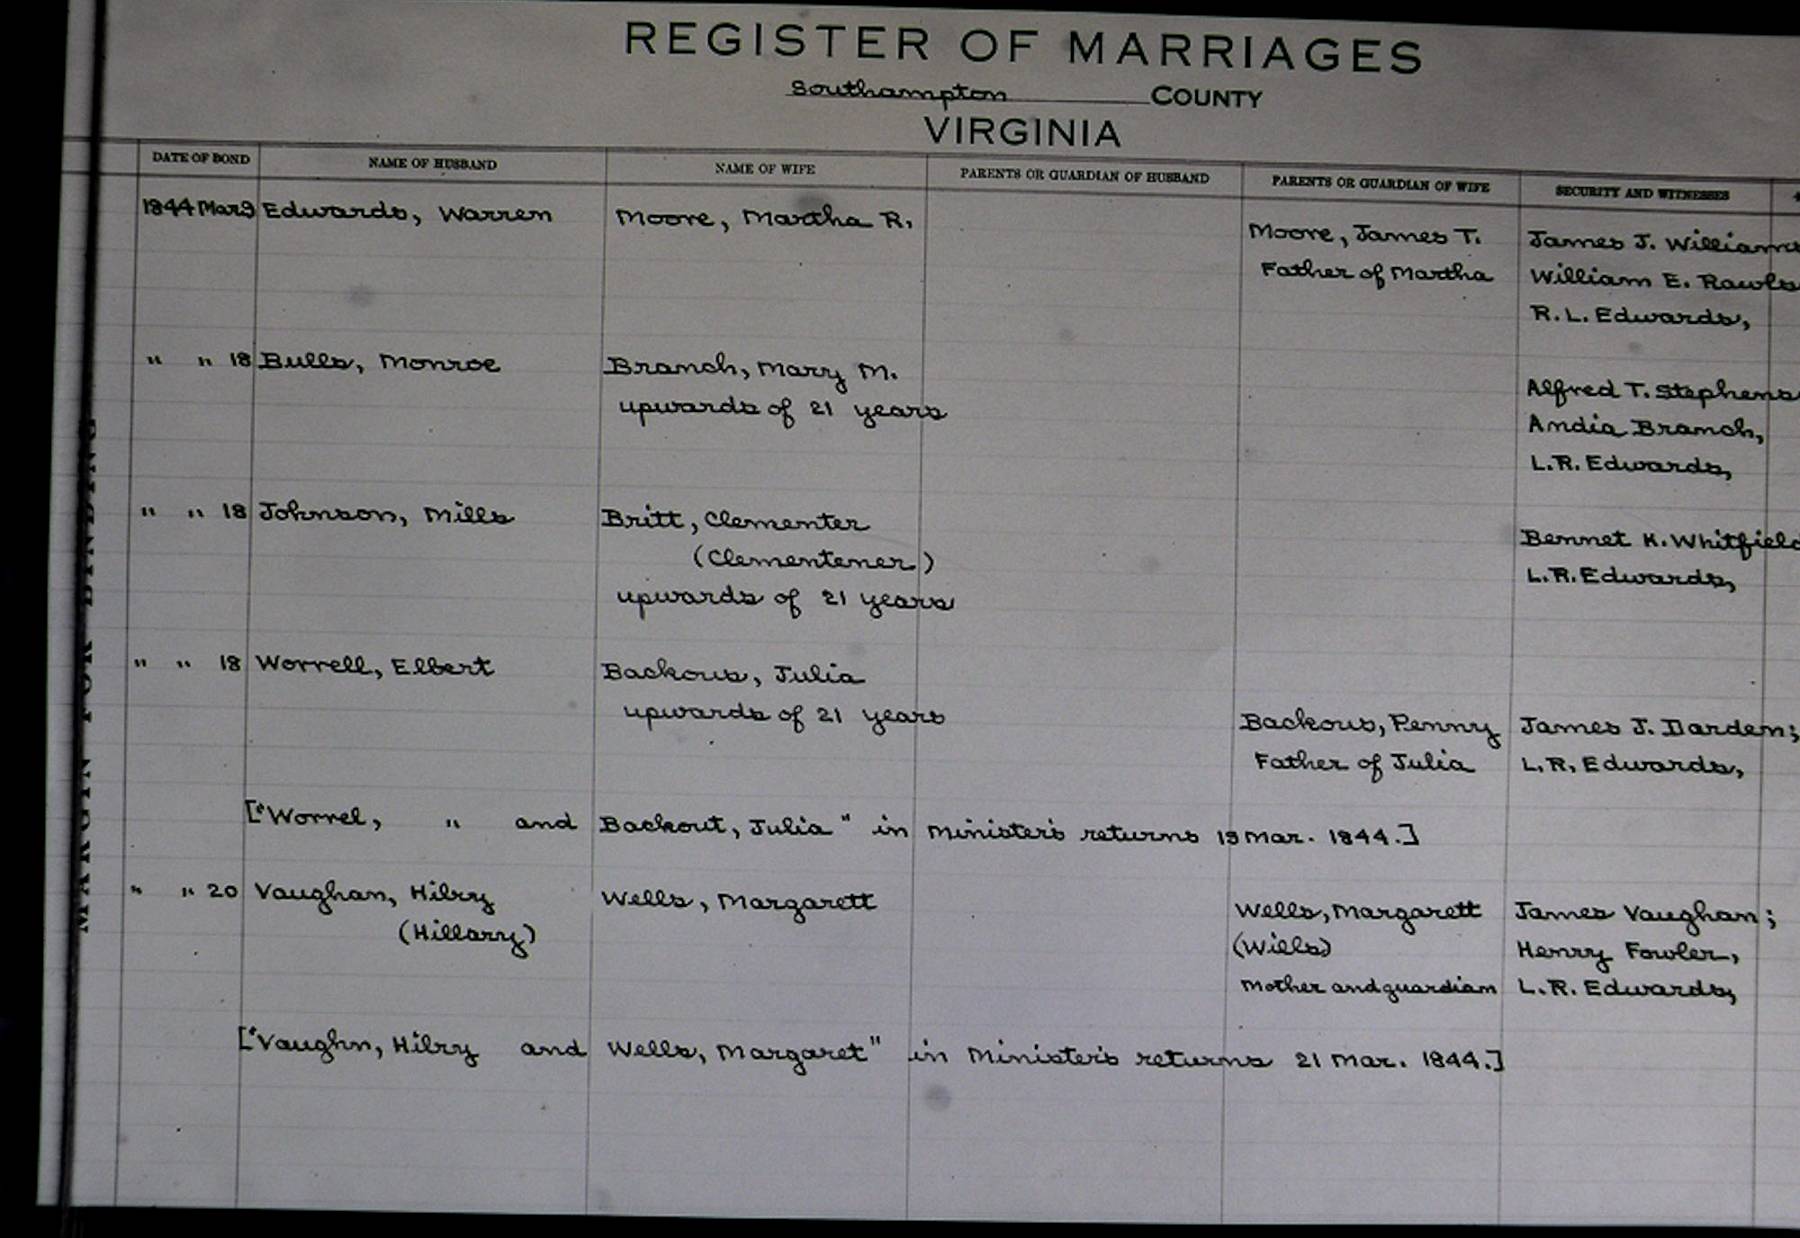 REGISTER OF MARRIAGES
Southampton COUNTY
VIRGINIA
DATE OF BOND NAME OF HUSBAND NAME OF WIFE PARENTS OR GUARDIAN OF HUSBAND PARENTS OR GUARDIAN OF WIFE SECURITY AND WITNESSES
1844 Mar 9 Edwards, Warren Moore, Martha R. Moore, James T. James J. Williams
Father of Martha William E. Rawls
R.L. Edwards,
" " 18 Bulls, Monroe Branch, Mary M. Alfred T. Stephens
upwards of 21 years Andia Branch,
L.R. Edwards,
" " 18 Johnson, Mills Britt, Clementer Bennet K. Whitfield
(Clementener) L.R. Edwards,
upwards of 21 years
" " 18 Worrell, Elbert Backous, Julia
upwards of 21 years Backous, Penny James J. Darden;
Father of Julia L.R. Edwards,
["Worrel, " and Backout, Julia" in Minister's returns 19 Mar. 1844.]
" " 20 Vaughan, Hilry Wells, Margarett Wells, Margarett James Vaughan;
(Hillarry) (Wills) Henry Fowler,
Mother and guardian L.R. Edwards,
["Vaughn, Hilry and Wells, Margaret" in Minister's returns 21 Mar. 1844.]
MARGIN FOR BINDING